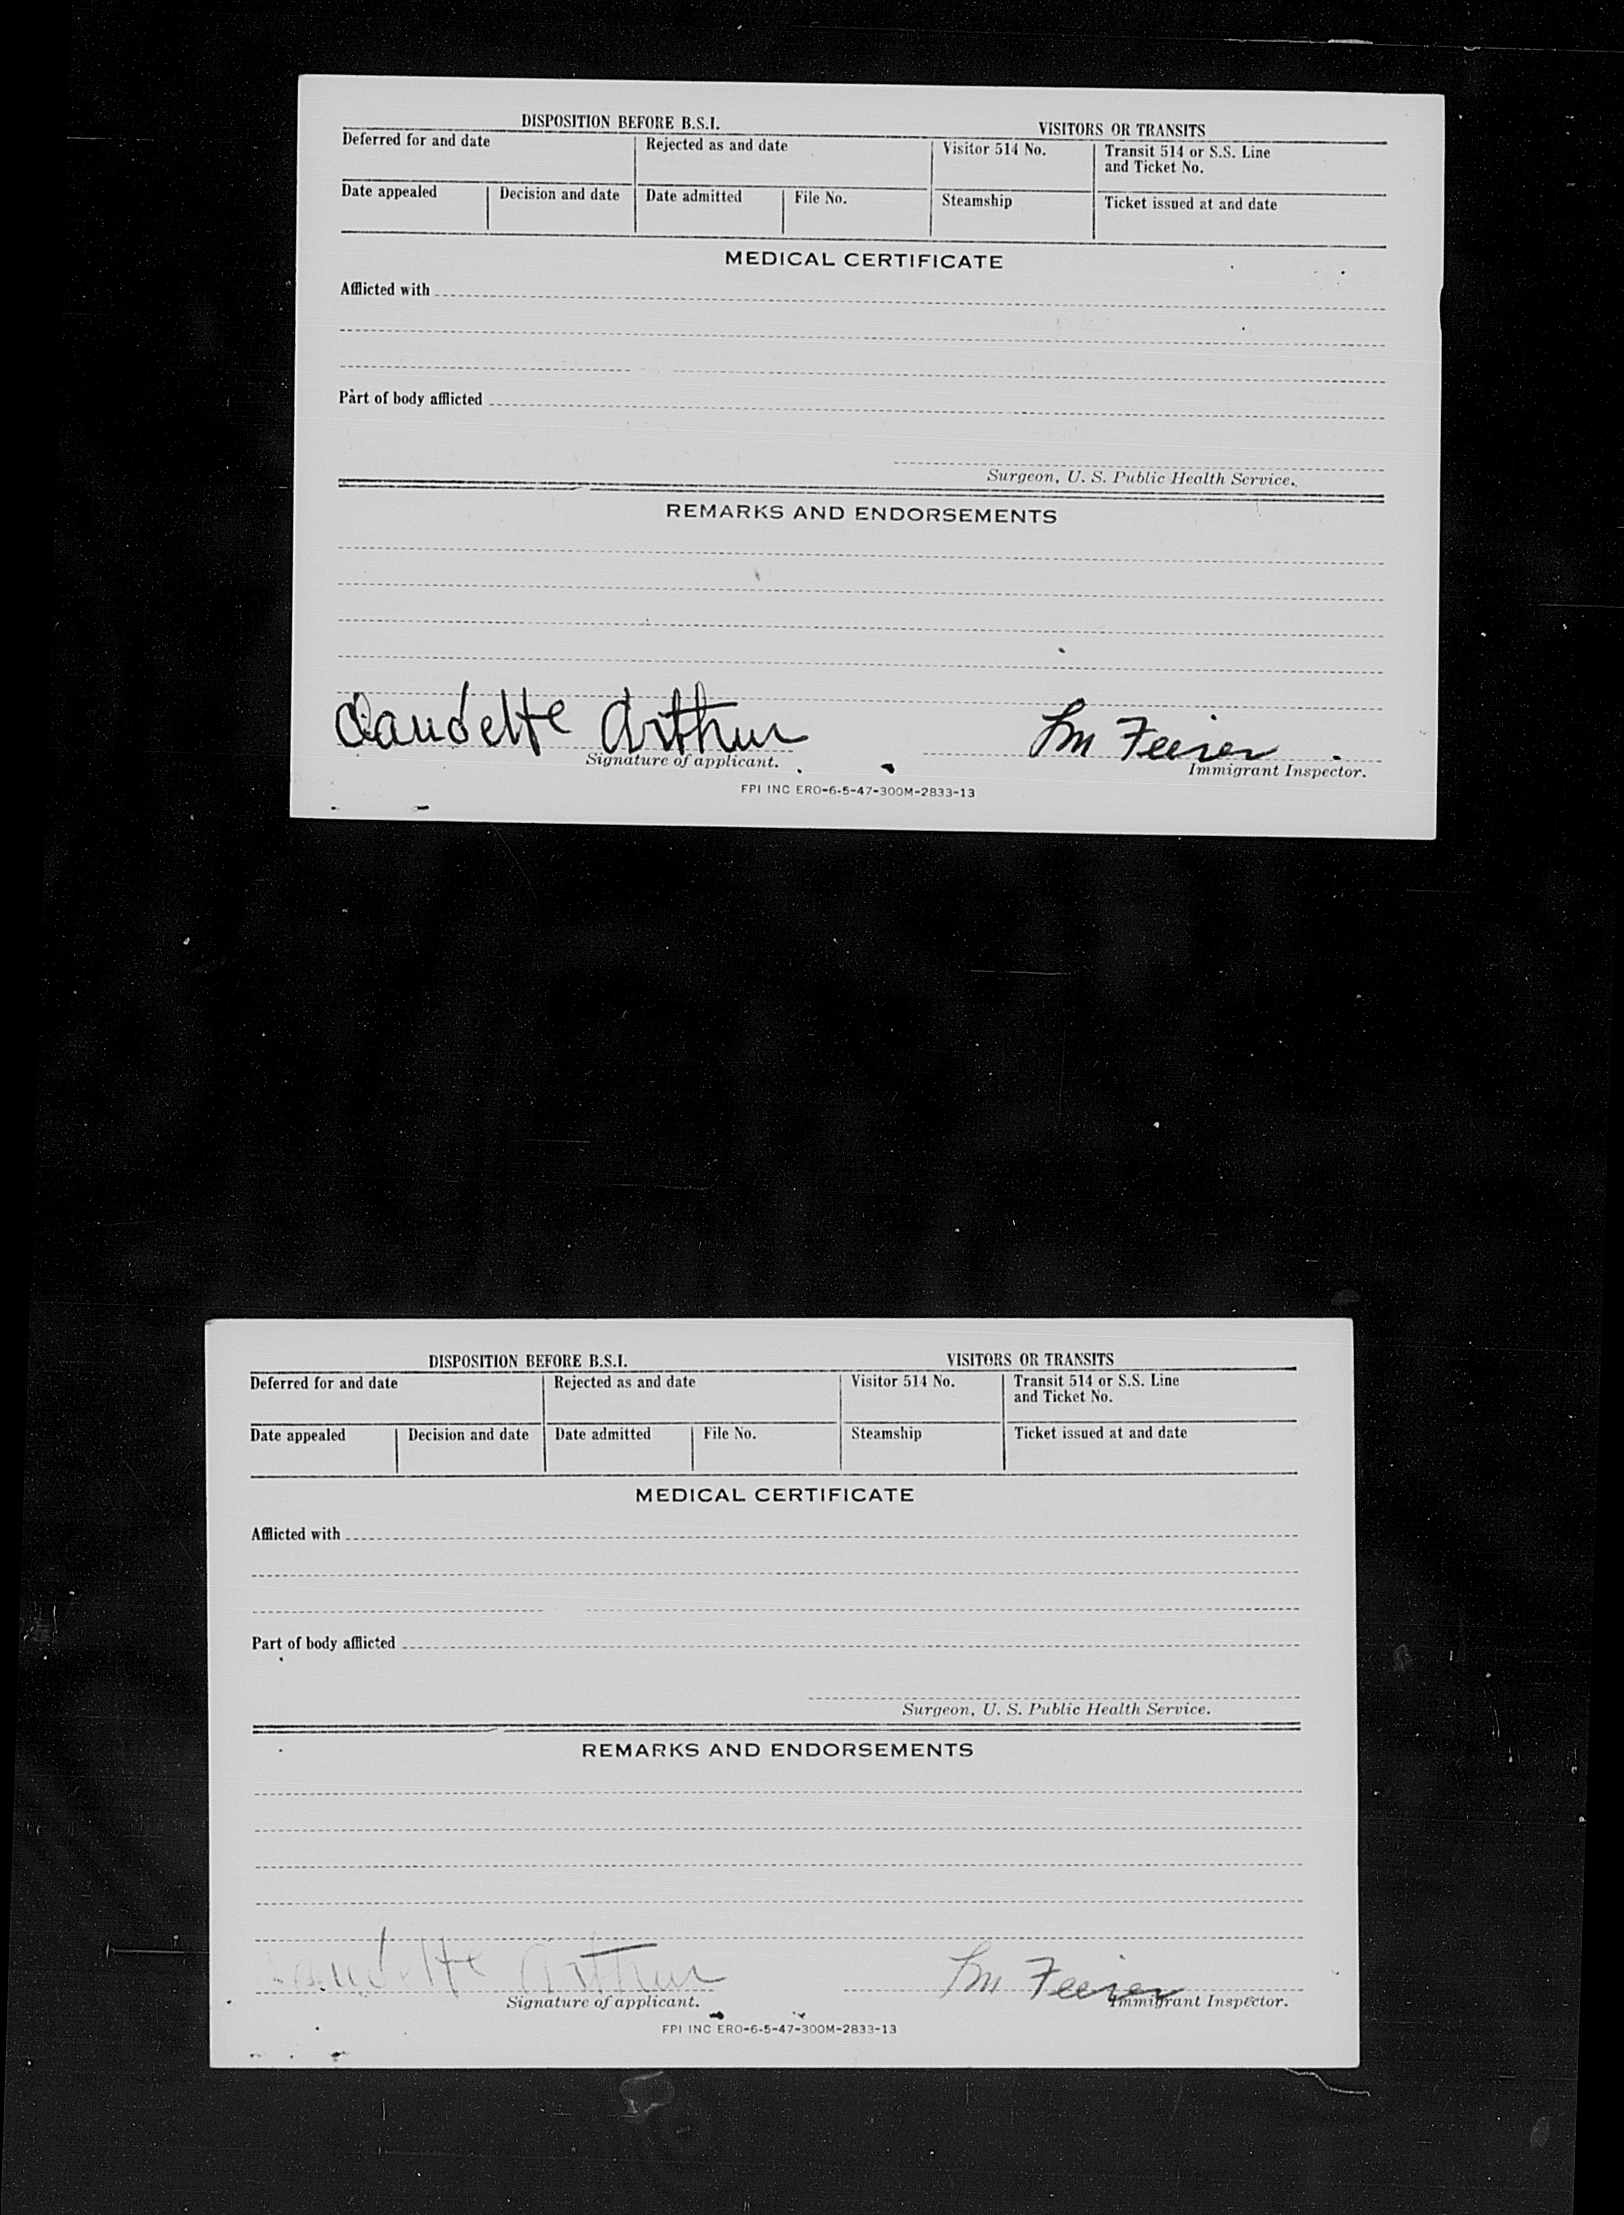 DISPOSITION BEFORE B.S.I. VISITORS OR TRANSITS
Deferred for and date Rejected as and date Visitor 514 No. Transit 514 or S.S. Line
and Ticket No.
Date appealed Decision and date Date admitted File No. Steamship Ticket issued at and date
MEDICAL CERTIFICATE
Afflicted with
Part of body afflicted
Surgeon, U. S. Public Health Service.
REMARKS AND ENDORSEMENTS
Claudette Arthur
Signature of applicant.
Immigrant Inspector.
FPI INC ERO-6-5-47-300M-2833-13
DISPOSITION BEFORE B.S.I. VISITORS OR TRANSITS
Deferred for and date Rejected as and date Visitor 514 No. Transit 514 or S.S. Line
and Ticket No.
Date appealed Decision and date Date admitted File No. Steamship Ticket issued at and date
MEDICAL CERTIFICATE
Afflicted with
Part of body afflicted
Surgeon, U. S. Public Health Service.
REMARKS AND ENDORSEMENTS
Claudette Arthur
Signature of applicant.
Immigrant Inspector.
FPI INC ERO-6-5-47-300M-2833-13